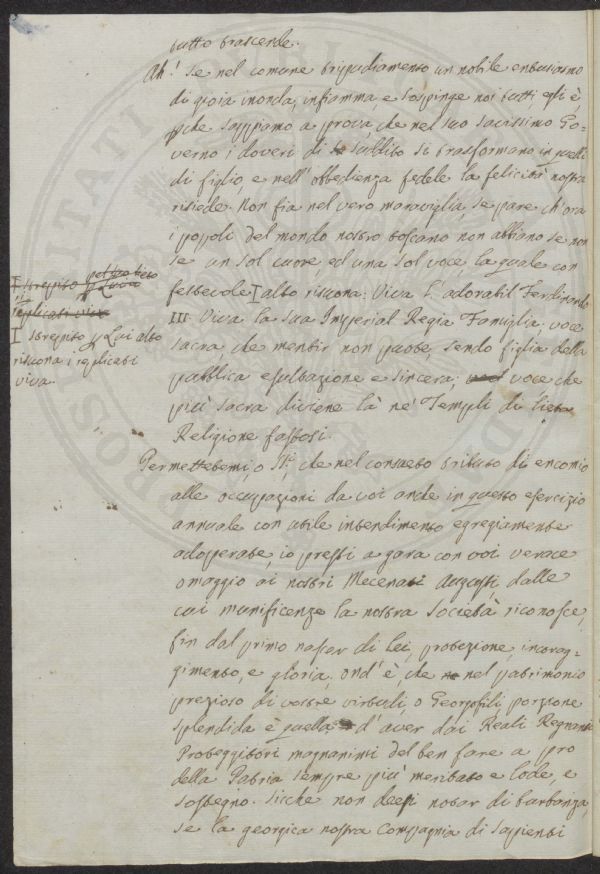 tutto trascende.
Ah! Se nel comune tripudiamento un nobile entusiasmo
di gioia inonda, infiamma, e sospinge noi tutti, egli è,
pche sappiamo a prova, che nel suo saviissimo Go=
verno i doveri di suddito si trasformano in quelli
di figlio, e nell'obbedienza fedele la felicità nostra
risiede. Non fia nel vero maraviglia, se pare ch'ora
i popoli del mondo nostro toscano non abbiano se non
se un sol cuore, ed una sol voce la quale con
festevole I alto risuona: Viva L'adorabil Ferdinando
III. Viva la sua Imperial Regia Famiglia; voce
sacra, che mentir non puote, sendo figlia della
pubblica esultazione e sincera; voce che
più sacra diviene là ne' Templi di
Religione fastosi.
Permettetemi, o SS.i, che nel consueto tributo di encomio
alle occupazioni da voi anche in questo esercizio
annuale con utile intendimento egregiamente
adoperate, io presti a gara con voi verace
omaggio ai nostri Mecenati Augusti, dalle
cui munificenze la nostra Società riconosce,
fin dal primo nascer di Lei, protezione, incorag=
gimento, e gloria; ond'è, che nel patrimonio
prezioso di vostre virtudi, o Georgofili, porzione
splendida è quella d'aver dai Reali Regnanti
Proteggitori magnanimi del ben fare a pro
della Patria sempre più meritato e lode, e
sostegno. Sicche non deesi notar di burbanza,
se la georgica nostra Compagnia di sapienti
I strepito
replicati viva
I strepito p Lui alto
risuona i replicati
viva